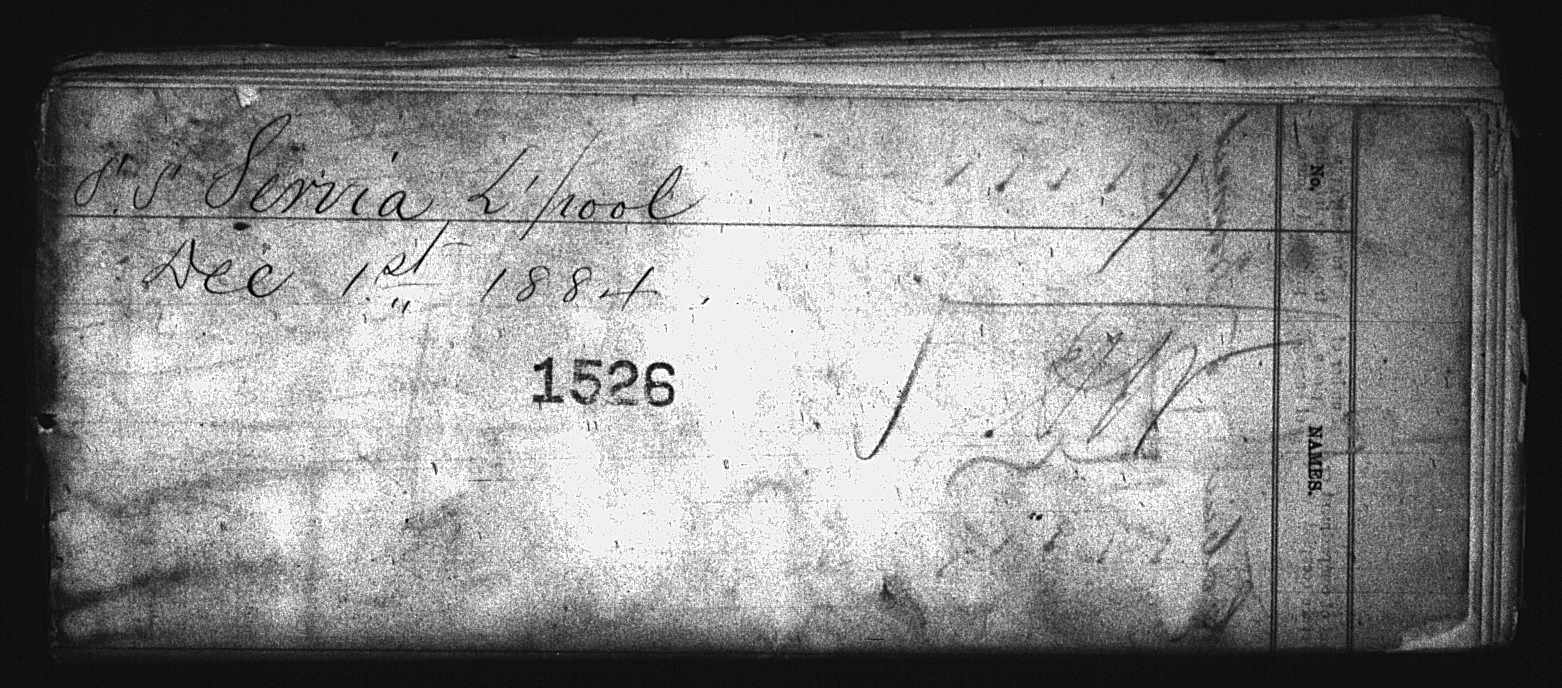 S.S Servia L'pool
Dec 1st 1884.
1526
No.
NAMES.